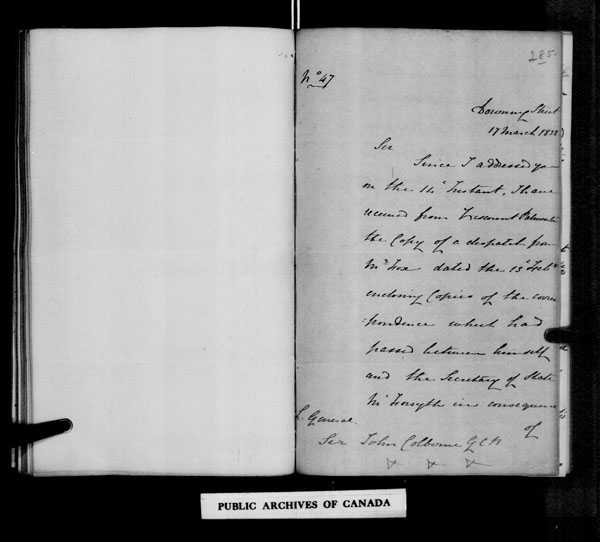 285
No 47
Downing Street
17 March 1838
Sir
Since I addressed you
on the 14th Instant, I have
received from Viscount Palmerston
the Copy of a despatch from
Mr Fox dated the 13th Feby
enclosing Copies of the corres
=pondence which had
passed between himself
and the Secretary of State
Mr Forsyth in consequence
of
Lt General
Sir John Colborne GCB
PUBLIC ARCHIVES OF CANADA